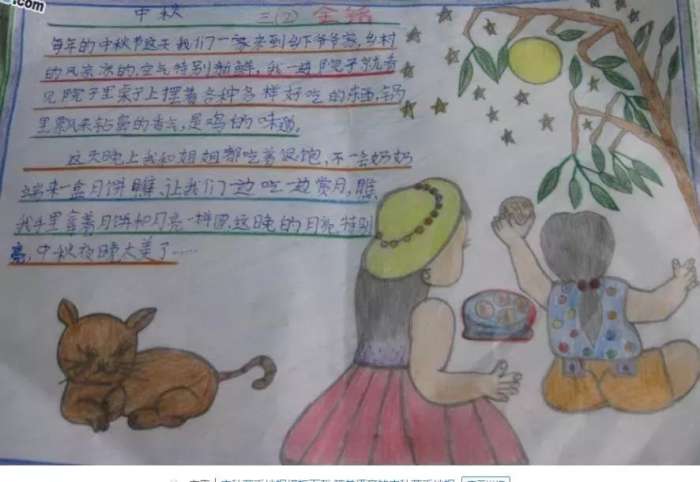 com
中秋 三(2)
每年的中秋节这天我们一家来到乡下爷爷家,乡村
的风凉凉的,空气特别新鲜,我一进院子就看
见院子里桌子上摆着各种各样好吃的东西,锅
里飘来的香气,是鸡的味道。
这天晚上我和姐姐都吃着很饱,不一会奶奶
端来一盒月饼,让我们边吃一边赏月,瞧
我手里拿着月饼和月亮一样圆,这晚的月亮特别
亮,中秋夜晚太美了……